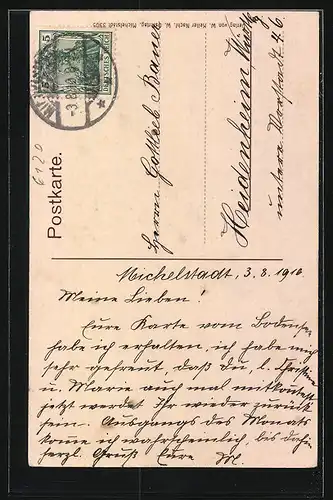 Postkarte.
Verlag von W. Keiler Nachf. Michelstadt 5505
DEUTSCHES REICH
5
6120
Herrn Gottlieb Bauer
Heidenheim
untere Vorstadt 46
Michelstadt, 3.8.1910
Meine Lieben!
Eure Karte vom Bodensee
habe ich erhalten, ich habe mich
sehr gefreut, daß du, l. Christine
u. Marie auch mal mitkonntest
jetzt werdet Ihr wieder zurück
sein. Ausgangs des Monats
komme ich wahrscheinlich, bis dahin
herzl. Gruß Eure M.